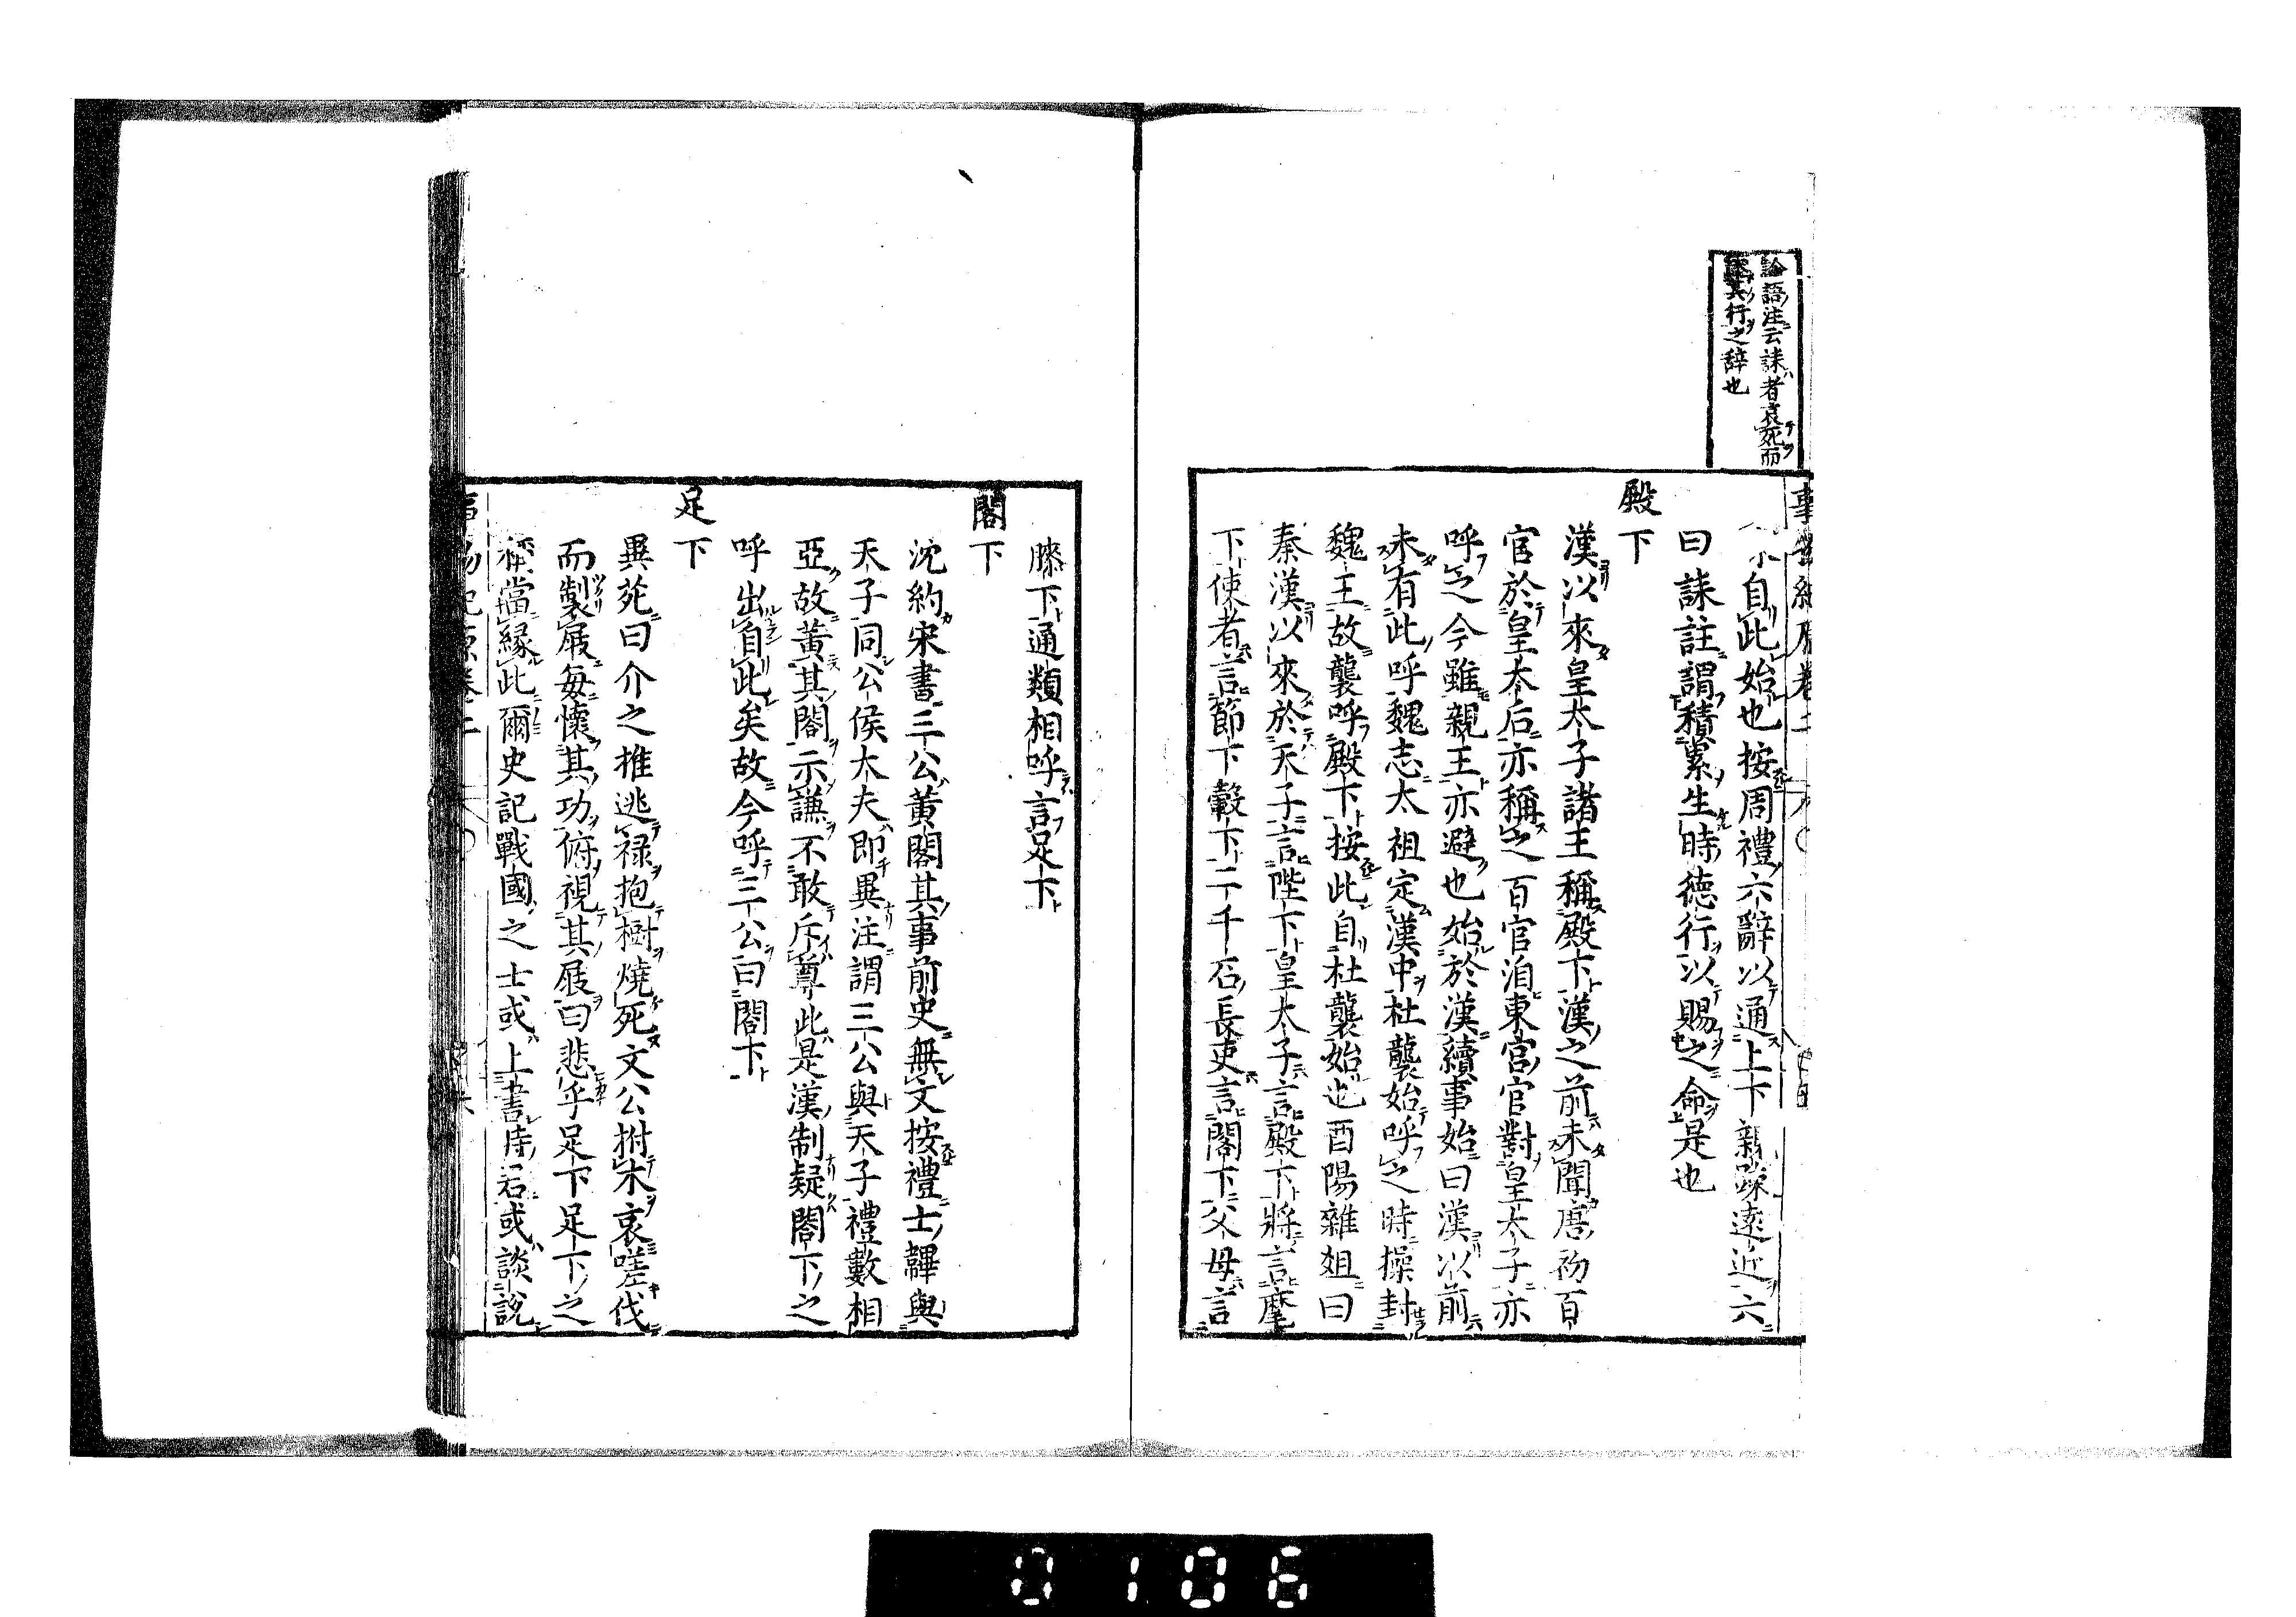 論語注云誄者哀死而
其行之辭也
自此始也按周禮六辭以通上下親踈遠近六
曰誄註謂積累生時德行以賜之命是也
殿下
漢以來皇太子諸王稱殿下漢之前未聞唐初百
官於皇太后亦稱之百官洎東宮官對皇太子亦
呼之今雖親王亦避也始於漢續事始曰漢以前
未有此呼魏志太祖定漢中杜襲始呼之時操封
魏王故襲呼殿下按此自杜襲始也酉陽雜爼曰
秦漢以來於天子言陛下皇太子言殿下將言麾
下使者言節下轂下二千石長吏言閣下父母言
膝下通類相呼言足下
閣下
沈約宋書三公黃閣其事前史無文按禮士韠與
天子同公侯大夫即異注謂三公與天子禮數相
亞故黃其閣示謙不敢斥尊此是漢制疑閣下之
呼出自此矣故今呼三公曰閣下
足下
異苑曰介之推逃禄抱樹燒死文公拊木哀嗟伐
而製屐每懷其功俯視其屐曰悲乎足下足下之
稱當緣此爾史記戰國之士或上書時君或談說